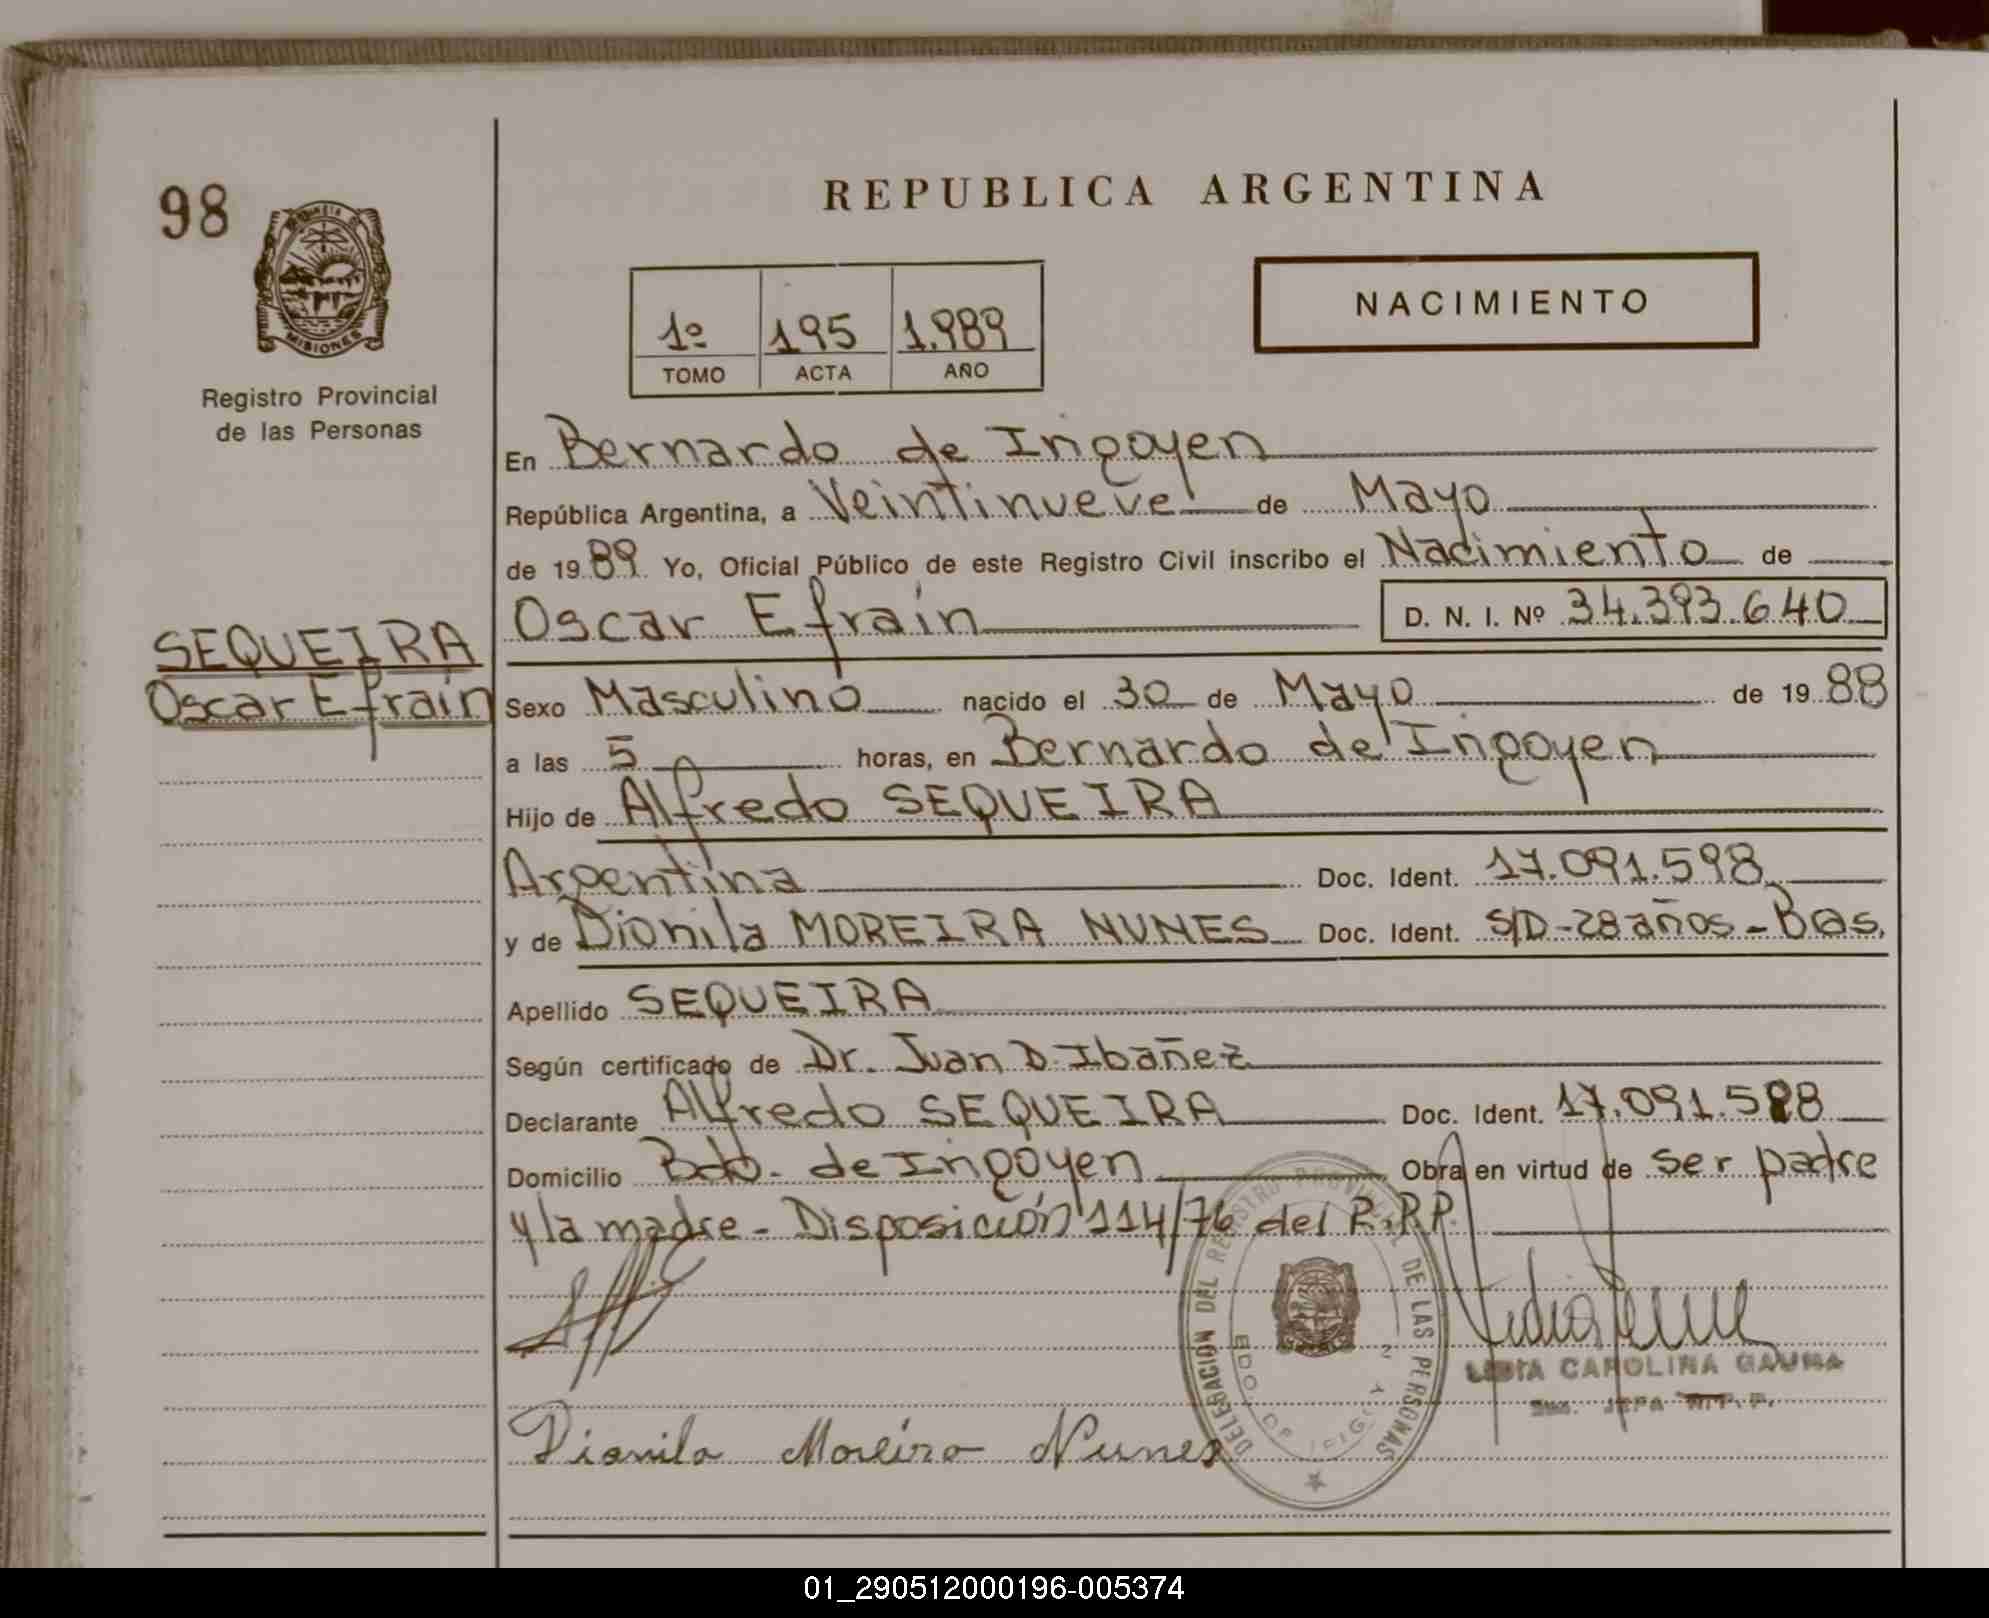 98
MISIONES
Registro Provincial
de las Personas
SEQUEIRA
Oscar Efraín
REPUBLICA ARGENTINA
1º 195 1.989
TOMO ACTA AÑO
NACIMIENTO
En Bernardo de Irigoyen
República Argentina, a Veintinueve de Mayo
de 1989 Yo, Oficial Público de este Registro Civil inscribo el Nacimiento de
Oscar Efraín D. N. I. Nº 34.393.640
Sexo Masculino nacido el 30 de Mayo de 1988
a las 5 horas, en Bernardo de Irigoyen
Hijo de Alfredo SEQUEIRA
Argentina Doc. Ident. 17.091.598
y de Dionila MOREIRA NUNES Doc. Ident. S/D-28 años - Bras.
Apellido SEQUEIRA
Según certificado de Dr. Juan D. Ibañez
Declarante Alfredo SEQUEIRA Doc. Ident. 17.091.598
Domicilio Bdo. de Irigoyen Obra en virtud de ser padre
y la madre - Disposición 114/76 del R.P.P.
DELEGACIÓN DEL REGISTRO PROVINCIAL DE LAS PERSONAS
LIDIA CAROLINA GAUNA
JEFA R.P.P.
Dionila Moreira Nunes
01_290512000196-005374